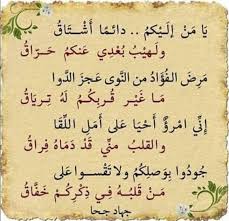 يَا مَنْ إلَيْكمُ .. دائمًا أَشْتاقُ
ولَهيْبُ بُعْدِي عَنكمُ حَرّاقُ
مَرِضَ الفُؤَادُ مِن النَّوى عَجزَ الدَّوا
مَا غَيْرَ قُربِكُمُ لَهُ تِريَاقُ
إنِّي امْرؤٌ أَحْيَا عَلى أَمَلِ اللِّقَا
والقَلبُ مِنِّي قَدْ دَمَاهُ فِراقُ
جُودُوا بِوَصلِكُمُ ولا تَقْسوا عَلى
مَنْ قَلبُهُ فِي ذِكْرِكُمْ خَفَّاقُ
جهاد جحا